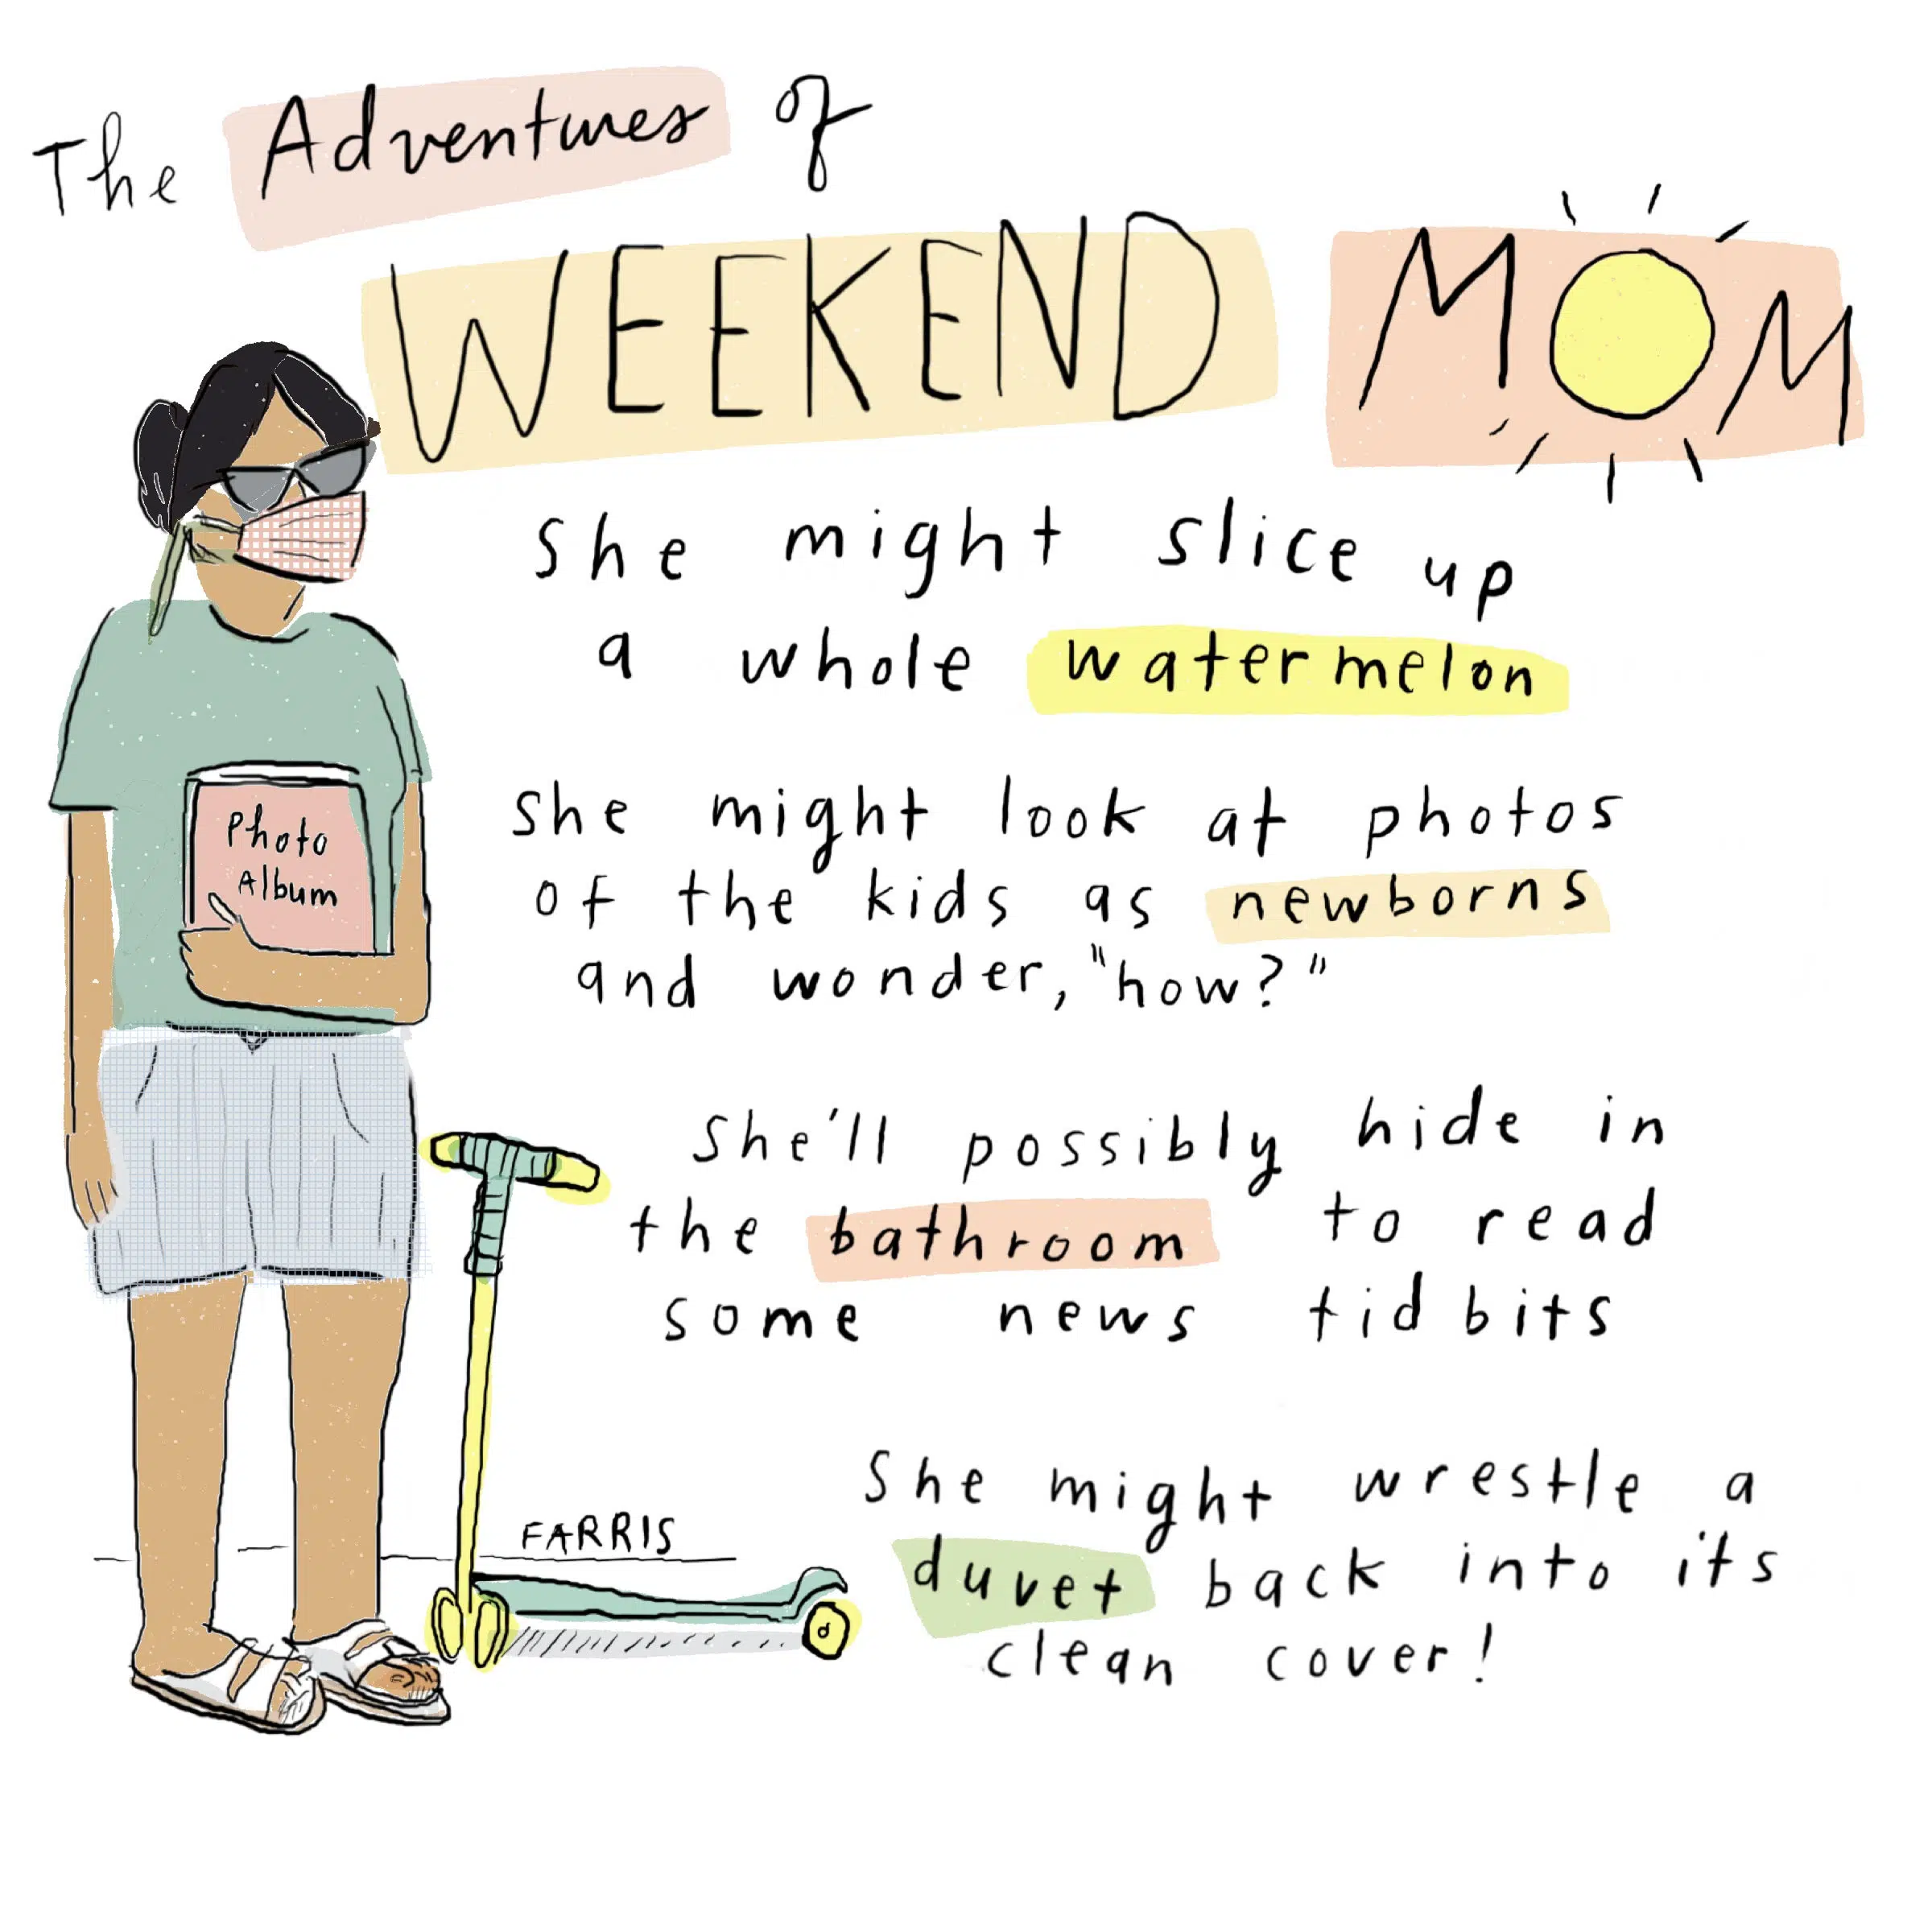 The Adventures of
WEEKEND MOM
She might slice up
a whole watermelon
She might look at photos
of the kids as newborns
and wonder, "how?"
She'll possibly hide in
the bathroom to read
some news tidbits
She might wrestle a
duvet back into it's
clean cover!
Photo
Album
FARRIS